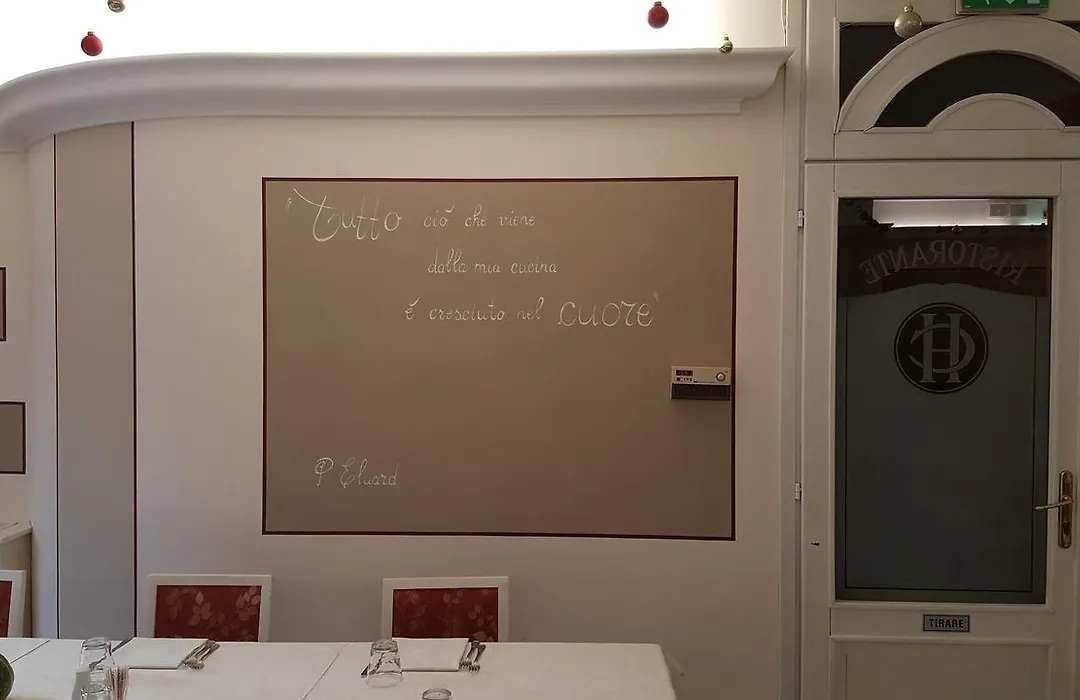 "Tutto ciò che viene
dalla mia cucina
è cresciuto nel cuore"
P Eluard
RISTORANTE
HC
TIRARE